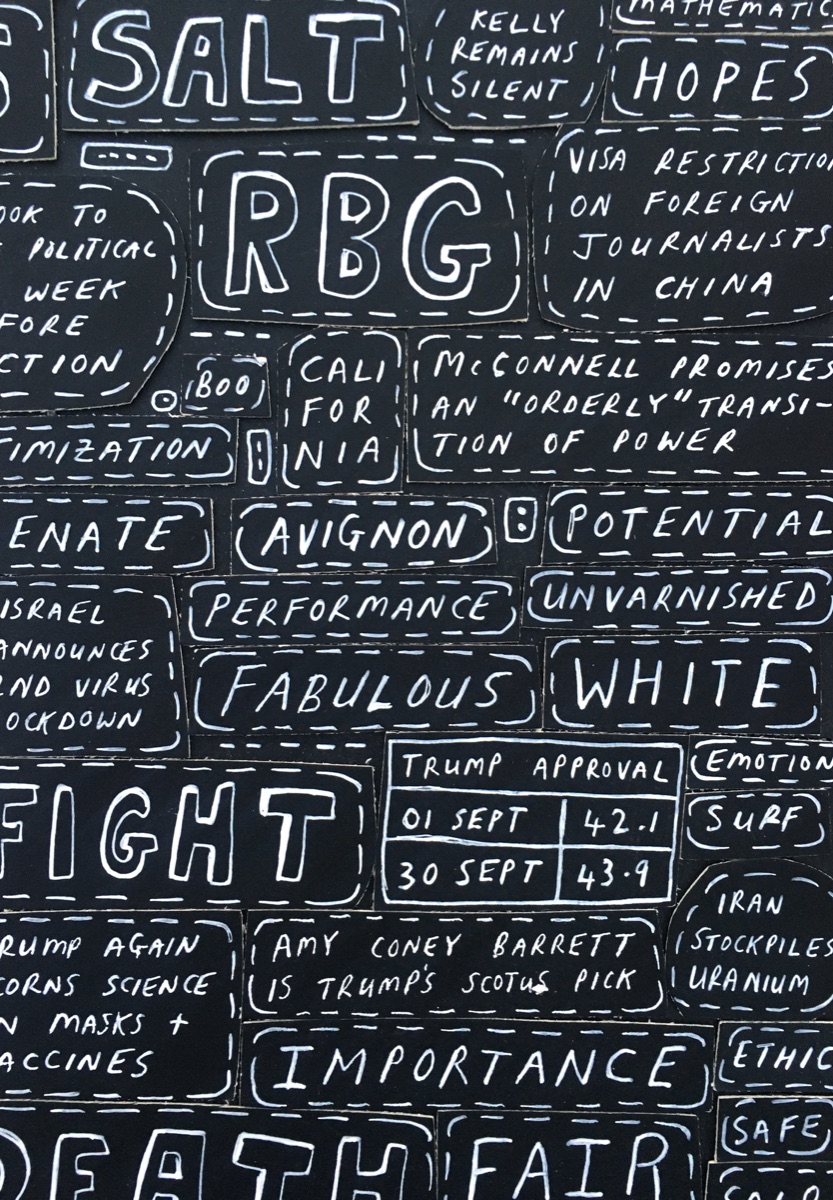 SALT
KELLY
REMAINS
SILENT
HOPES
RBG
VISA RESTRICTION
ON FOREIGN
JOURNALISTS
IN CHINA
TO
POLITICAL
WEEK
BOO
CALI
FOR
NIA
McCONNELL PROMISES
AN "ORDERLY" TRANSI-
TION OF POWER
TIMIZATION
ENATE
AVIGNON
POTENTIAL
ISRAEL
ANNOUNCES
2ND VIRUS
OCKDOWN
PERFORMANCE
UNVARNISHED
FABULOUS
WHITE
FIGHT
TRUMP APPROVAL
01 SEPT 42.1
30 SEPT 43.9
EMOTION
SURF
IRAN
STOCKPILES
URANIUM
RUMP AGAIN
CORNS SCIENCE
N MASKS +
ACCINES
AMY CONEY BARRETT
IS TRUMP'S SCOTUS PICK
IMPORTANCE
ETHIC
SAFE
DEATH
FAIR